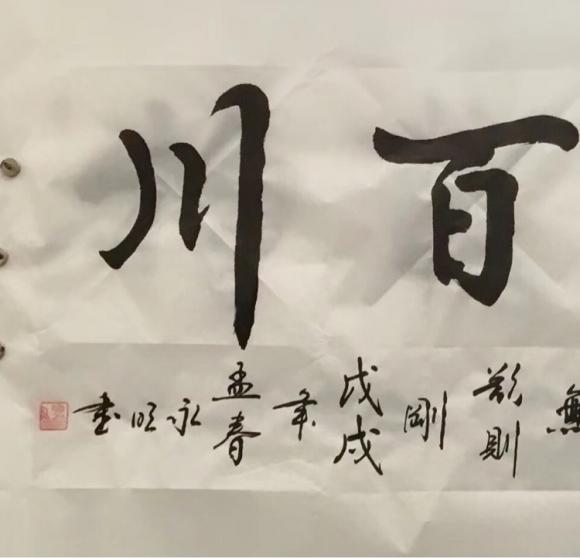 百川
無欲則剛 戊戌年孟春永明書